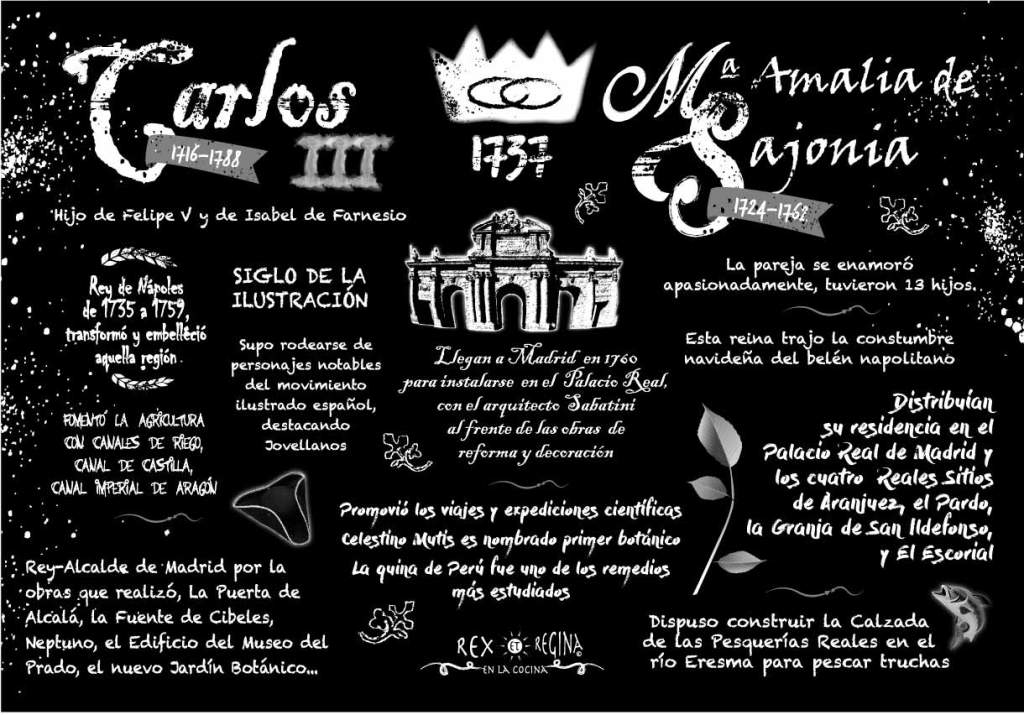 Carlos
III
1716-1788
Hijo de Felipe V y de Isabel de Farnesio
1737
Mª Amalia de
Sajonia
1724-1762
Rey de Nápoles
de 1735 a 1759,
transformó y embelleció
aquella región
SIGLO DE LA
ILUSTRACIÓN
Supo rodearse de
personajes notables
del movimiento
ilustrado español,
destacando
Jovellanos
FOMENTÓ LA AGRICULTURA
CON CANALES DE RIEGO,
CANAL DE CASTILLA,
CANAL IMPERIAL DE ARAGÓN
Rey-Alcalde de Madrid por la
obras que realizó, La Puerta de
Alcalá, la Fuente de Cibeles,
Neptuno, el Edificio del Museo del
Prado, el nuevo Jardín Botánico...
Llegan a Madrid en 1760
para instalarse en el Palacio Real,
con el arquitecto Sabatini
al frente de las obras de
reforma y decoración
Promovió los viajes y expediciones científicas
Celestino Mutis es nombrado primer botánico
La quina de Perú fue uno de los remedios
más estudiados
REX ET REGINA
EN LA COCINA
La pareja se enamoró
apasionadamente, tuvieron 13 hijos.
Esta reina trajo la constumbre
navideña del belén napolitano
Distribuían
su residencia en el
Palacio Real de Madrid y
los cuatro Reales Sitios
de Aranjuez, el Pardo,
la Granja de San Ildefonso,
y El Escorial
Dispuso construir la Calzada
de las Pesquerías Reales en el
río Eresma para pescar truchas